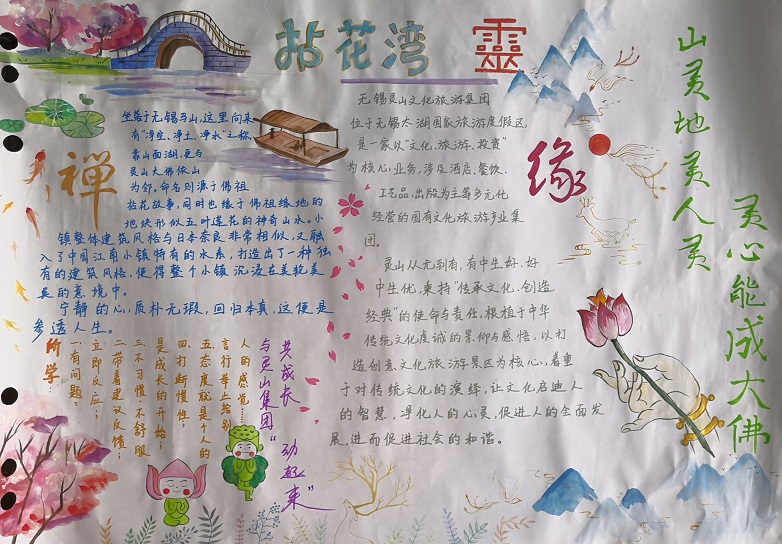 拈花湾 靈
禅
坐落于无锡马山,这里向来
有"净空、净土、净水"之称,
靠山面湖,更与
灵山大佛依山
为邻,命名则源于佛祖
拈花故事,同时也缘于佛祖缘地的
地块形似五叶莲花的神奇山水。小
镇整体建筑风格与日本奈良非常相似,又融
入了中国江南小镇特有的水系,打造出了一种独
有的建筑风格,使得整个小镇沉浸在美轮美
奂的意境中。
宁静的心,质朴无瑕,回归本真,这便是
参透人生。
所学:
一有问题,
立即反应;
二带着建议反馈;
三不习惯、不舒服
是成长的开始;
四打断惯性;
五态度就是个人的
言行举止给别
人的感觉……
与灵山集团"
共成长
动起来"
无锡灵山文化旅游集团
位于无锡太湖国家旅游度假区,
是一家以"文化、旅游、投资"
为核心业务,涉及酒店、餐饮、
工艺品、出版为主等多元化
经营的国有文化旅游产业集
团。
灵山从无到有,有中生好,好
中生优,秉持"传承文化、创造
经典"的使命与责任,根植于中华
传统文化虔诚的景仰与感悟,以打
造创意文化旅游景区为核心,着重
于对传统文化的演绎,让文化启迪人
的智慧,净化人的心灵,促进人的全面发
展,进而促进社会的和谐。
缘
山灵地灵人灵
灵心能成大佛